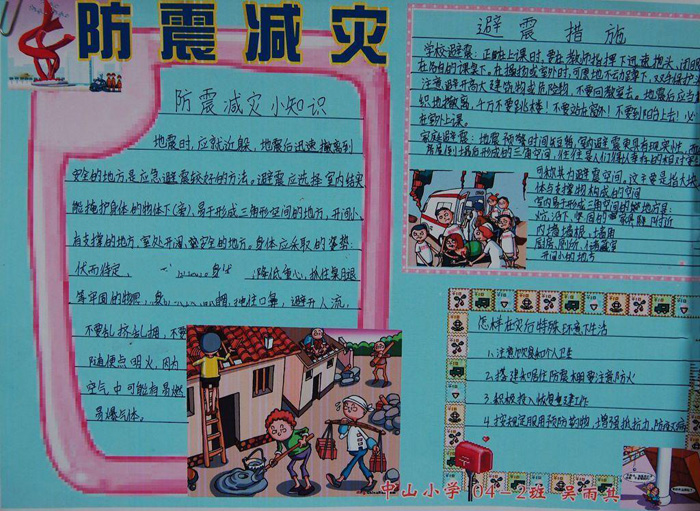 防震减灾
防震减灾小知识
地震时,应就近躲,地震后迅速撤离到
安全的地方是应急避震较好的方法。避震应选择室内结实
能掩护身体的物体下(旁)、易于形成三角形空间的地方,开间小、
有支撑的地方,室外开阔、安全的地方。身体应采取的姿势:
伏而待定。 降低重心,抓住桌腿
等牢固的物
避开人流,
不要乱挤乱拥,不要
随便点明火,因为
空气中可能有易燃
易爆气体。
避震措施
学校避震:正在上课时,要在教师指挥下迅速抱头、闭眼
在各自的课桌下。在操场或室外时,可原地不动蹲下,双手保护
注意避开高大建筑物或危险物。不要回教室去。地震后应当有
织地撤离。千万不要跳楼!不要站在窗外!不要到阳台上去!必
在室外上课。
家庭避震:地震预警时间短暂,室内避震更具有现实性,而
房屋倒塌后形成的三角空间,往往是人们得以幸存的相对
可称其为避震空间。这主要是指大
体与支撑物构成的空间
室内易于形成三角空间的地方是:
炕沿下、坚固的家具附近
内墙墙根、墙角
厨房、厕所、储藏室
开间小的地方
怎样在灾后特殊环境下生活
1.注意饮食和个人卫生
2.搭建和居住防震棚要注意防火
3.积极投入恢复重建工作
4.按规定服用预防药物,增强抵抗力,防
中山小学 04-2班 吴雨其